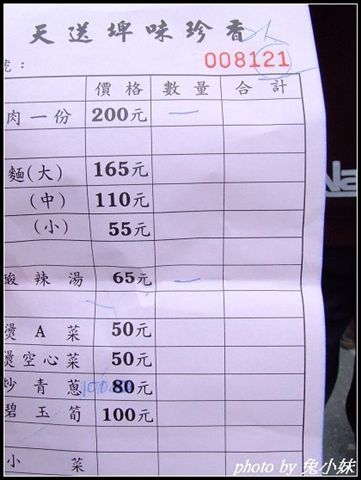 天送埤味珍香
號：
008121
價格 數量 合計
肉一份 200元 一
麵(大) 165元
(中) 110元
(小) 55元
酸辣湯 65元 一
燙A菜 50元
燙空心菜 50元
炒青蔥 80元
碧玉筍 100元
小菜
photo by 兔小妹